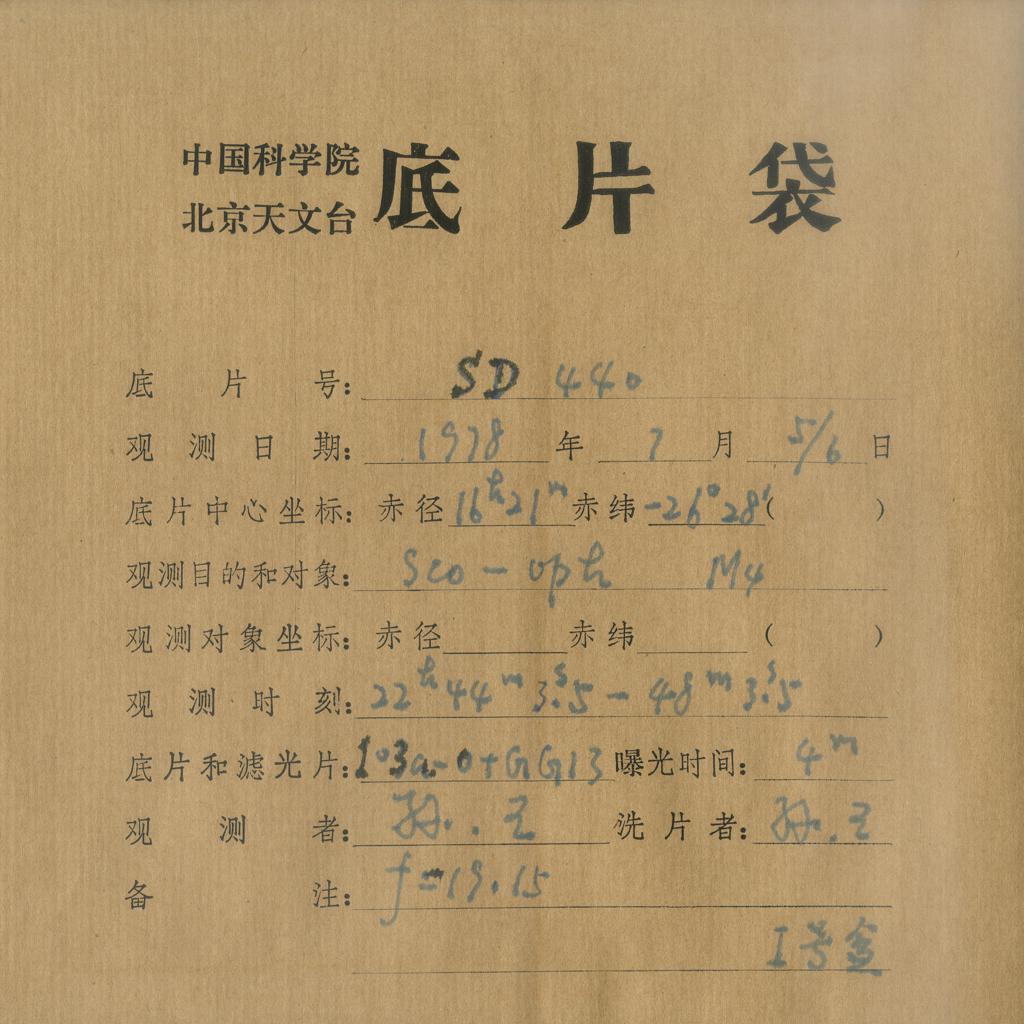 中国科学院
北京天文台
底片袋
底片号: SD 440
观测日期: 1978 年 7 月 5/6 日
底片中心坐标: 赤径 16h21m 赤纬 -26°28′ ( )
观测目的和对象: Sco - oph M4
观测对象坐标: 赤径 赤纬 ( )
观测时刻: 22h44m3s.5 - 48m3s.5
底片和滤光片: 103a-0+GG13 曝光时间: 4m
观测者: 孙.王 洗片者: 孙.王
备注: f=19.15
I号盒